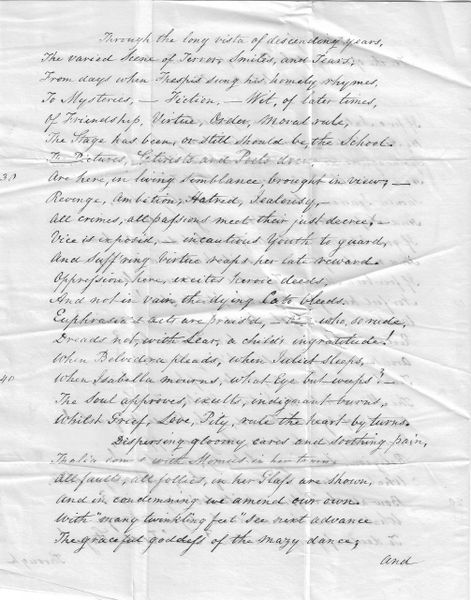 Through the long vista of descending years,
The varied Scene of Terror, Smiles, and Tears;
From days when Thespis sung his homely rhymes,
To Mysteries, – Fiction, – Wit, of later times,
Of Friendship, Virtue, Order, Moral rule,
The Stage has been, or still should be, the School.
Pictures, and Poets drew,
30 Are here, in living semblance, brought in view; –
Revenge, Ambition, Hatred, Jealousy, –
All crimes, all passions meet their just decree. –
Vice is exposed, – incautious Youth to guard,
And suff'ring Virtue reaps her late reward.
Oppression, here, excites heroic deeds,
And not in vain, the dying Cato bleeds.
Euphrasia's acts are prais'd, – who, so rude,
Dreads not, with Lear, a child's ingratitude!
When Belvidera pleads, when Juliet sleeps,
40 When Isabella mourns, what Eye but weeps? –
The Soul approves, exults, indignant burns,
Whilst Grief, Love, Pity, rule the heart by turns.
Dispersing gloomy cares and soothing pain,
Thalia com's with Momus in her train.
All faults, all follies, in her Glass are shown,
And in condemning we amend our own.
With "many twinkling feet" see next advance
The graceful goddess of the mazy dance;
And